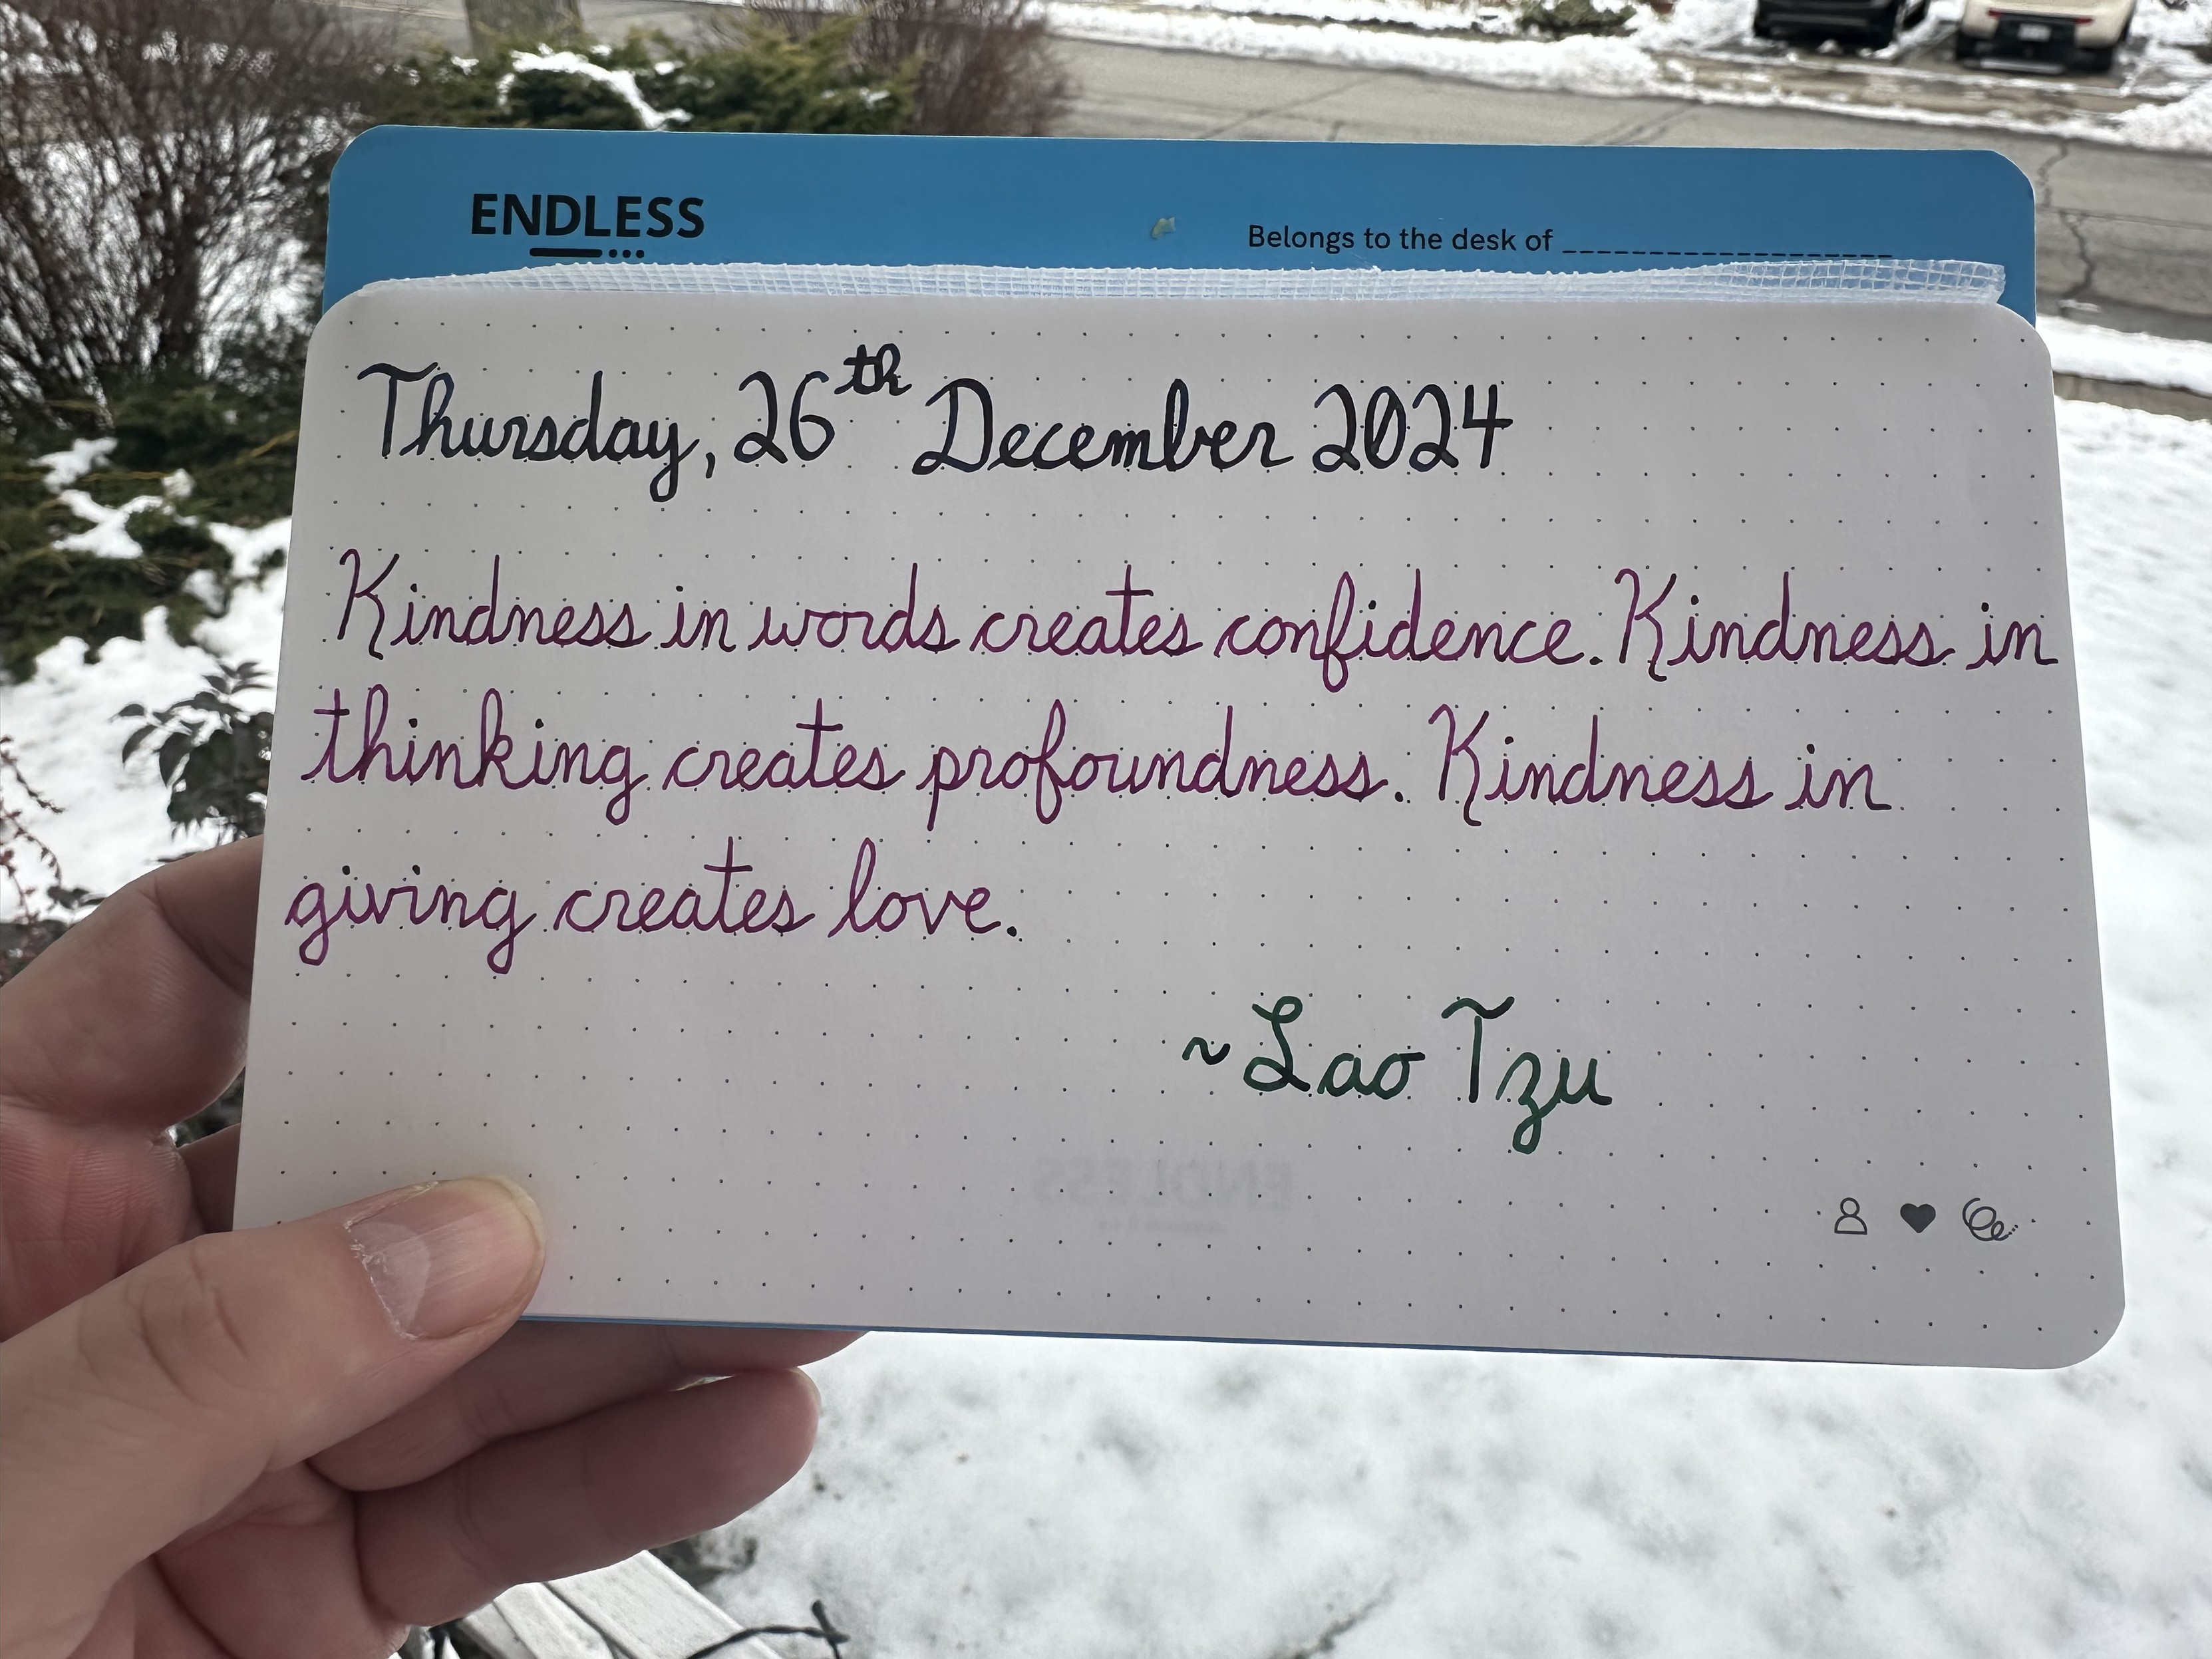 ENDLESS
Belongs to the desk of
Thursday, 26th December 2024
Kindness in words creates confidence. Kindness in
thinking creates profoundness. Kindness in
giving creates love.
~Lao Tzu
ENDLESS